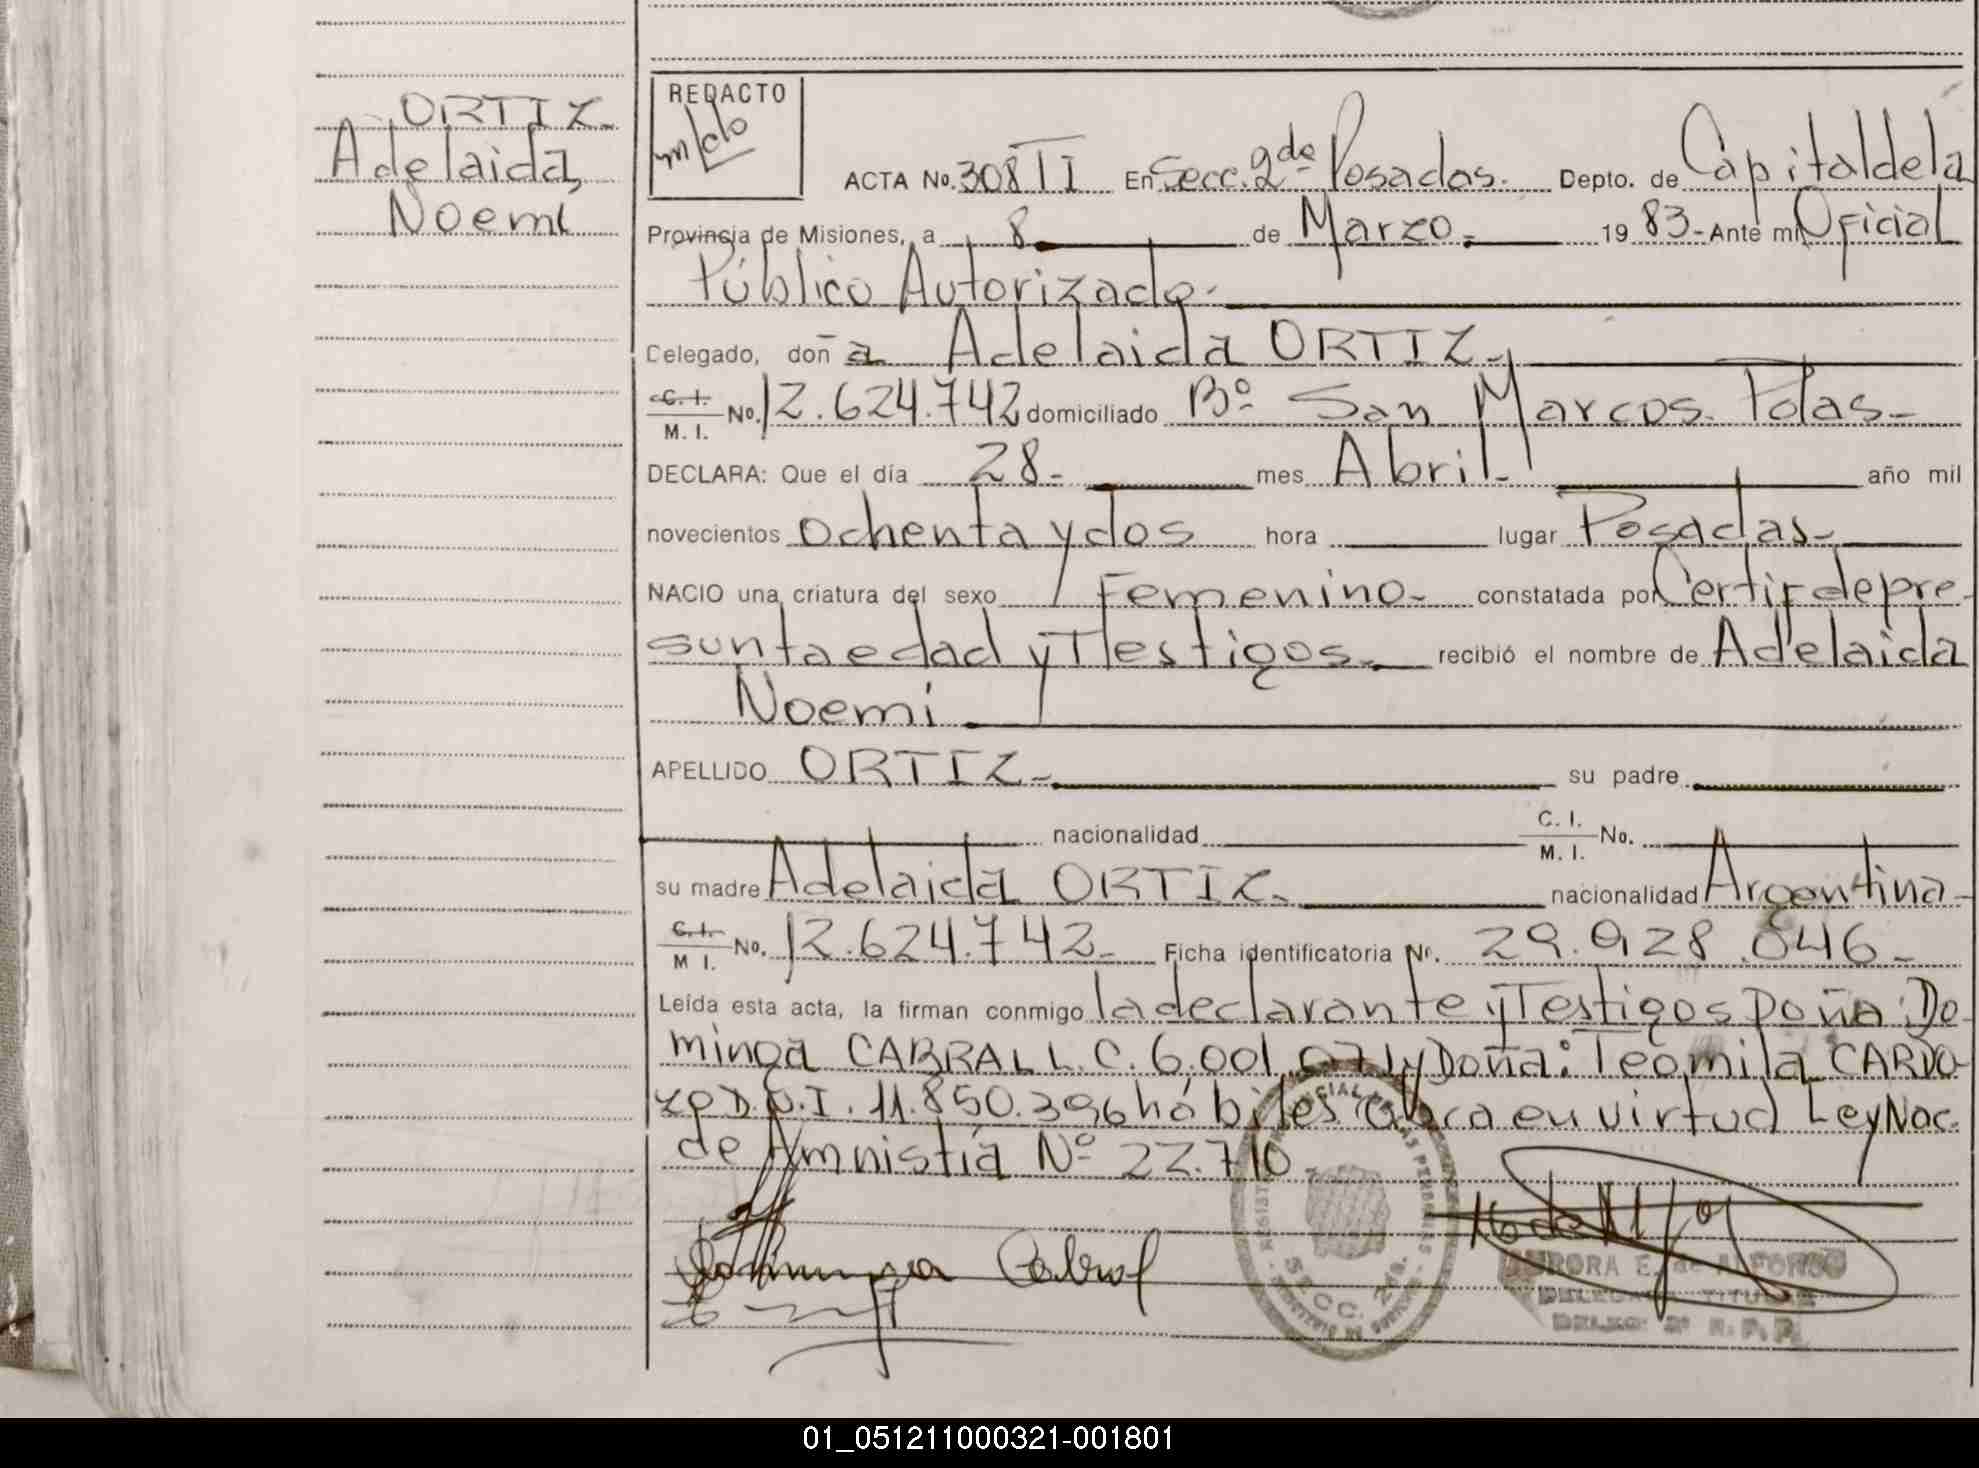 ORTIZ-
Adelaida,
Noemi
REDACTO
ACTA No. 308 TI En Secc. 2da Posadas. Depto. de Capital de la
Provincia de Misiones, a 8 de Marzo. 1983- Ante mi Oficial
Público Autorizado.
Delegado, doña Adelaida ORTIZ-
C. I. M. I. No. 12.624.742 domiciliado Bº San Marcos. Pdas-
DECLARA: Que el día 28- mes Abril- año mil
novecientos ochenta y dos hora lugar Posadas-
NACIO una criatura del sexo Femenino- constatada por Certif de pre
sunta edad y Testigos- recibió el nombre de Adelaida
Noemi
APELLIDO ORTIZ- su padre
nacionalidad C. I. M. I. No.
su madre Adelaida ORTIZ- nacionalidad Argentina-
C. I. M I. No. 12.624.742- Ficha identificatoria Nr. 29.928.046-
Leída esta acta, la firman conmigo la declarante y Testigos Doña: Do
minga CABRAL L.C. 6.001.071 y Doña: Teomila CARDO
ZO D.N.I. 11.850.396 hábiles en virtud Ley Nac.
de Amnistía Nº 22.710.
Dominga Cabral
SECC. 2da.
AURORA E. de ALFONSO
DELEGADA TITULAR
DELEG. 2ª R. P. P.
01_051211000321-001801